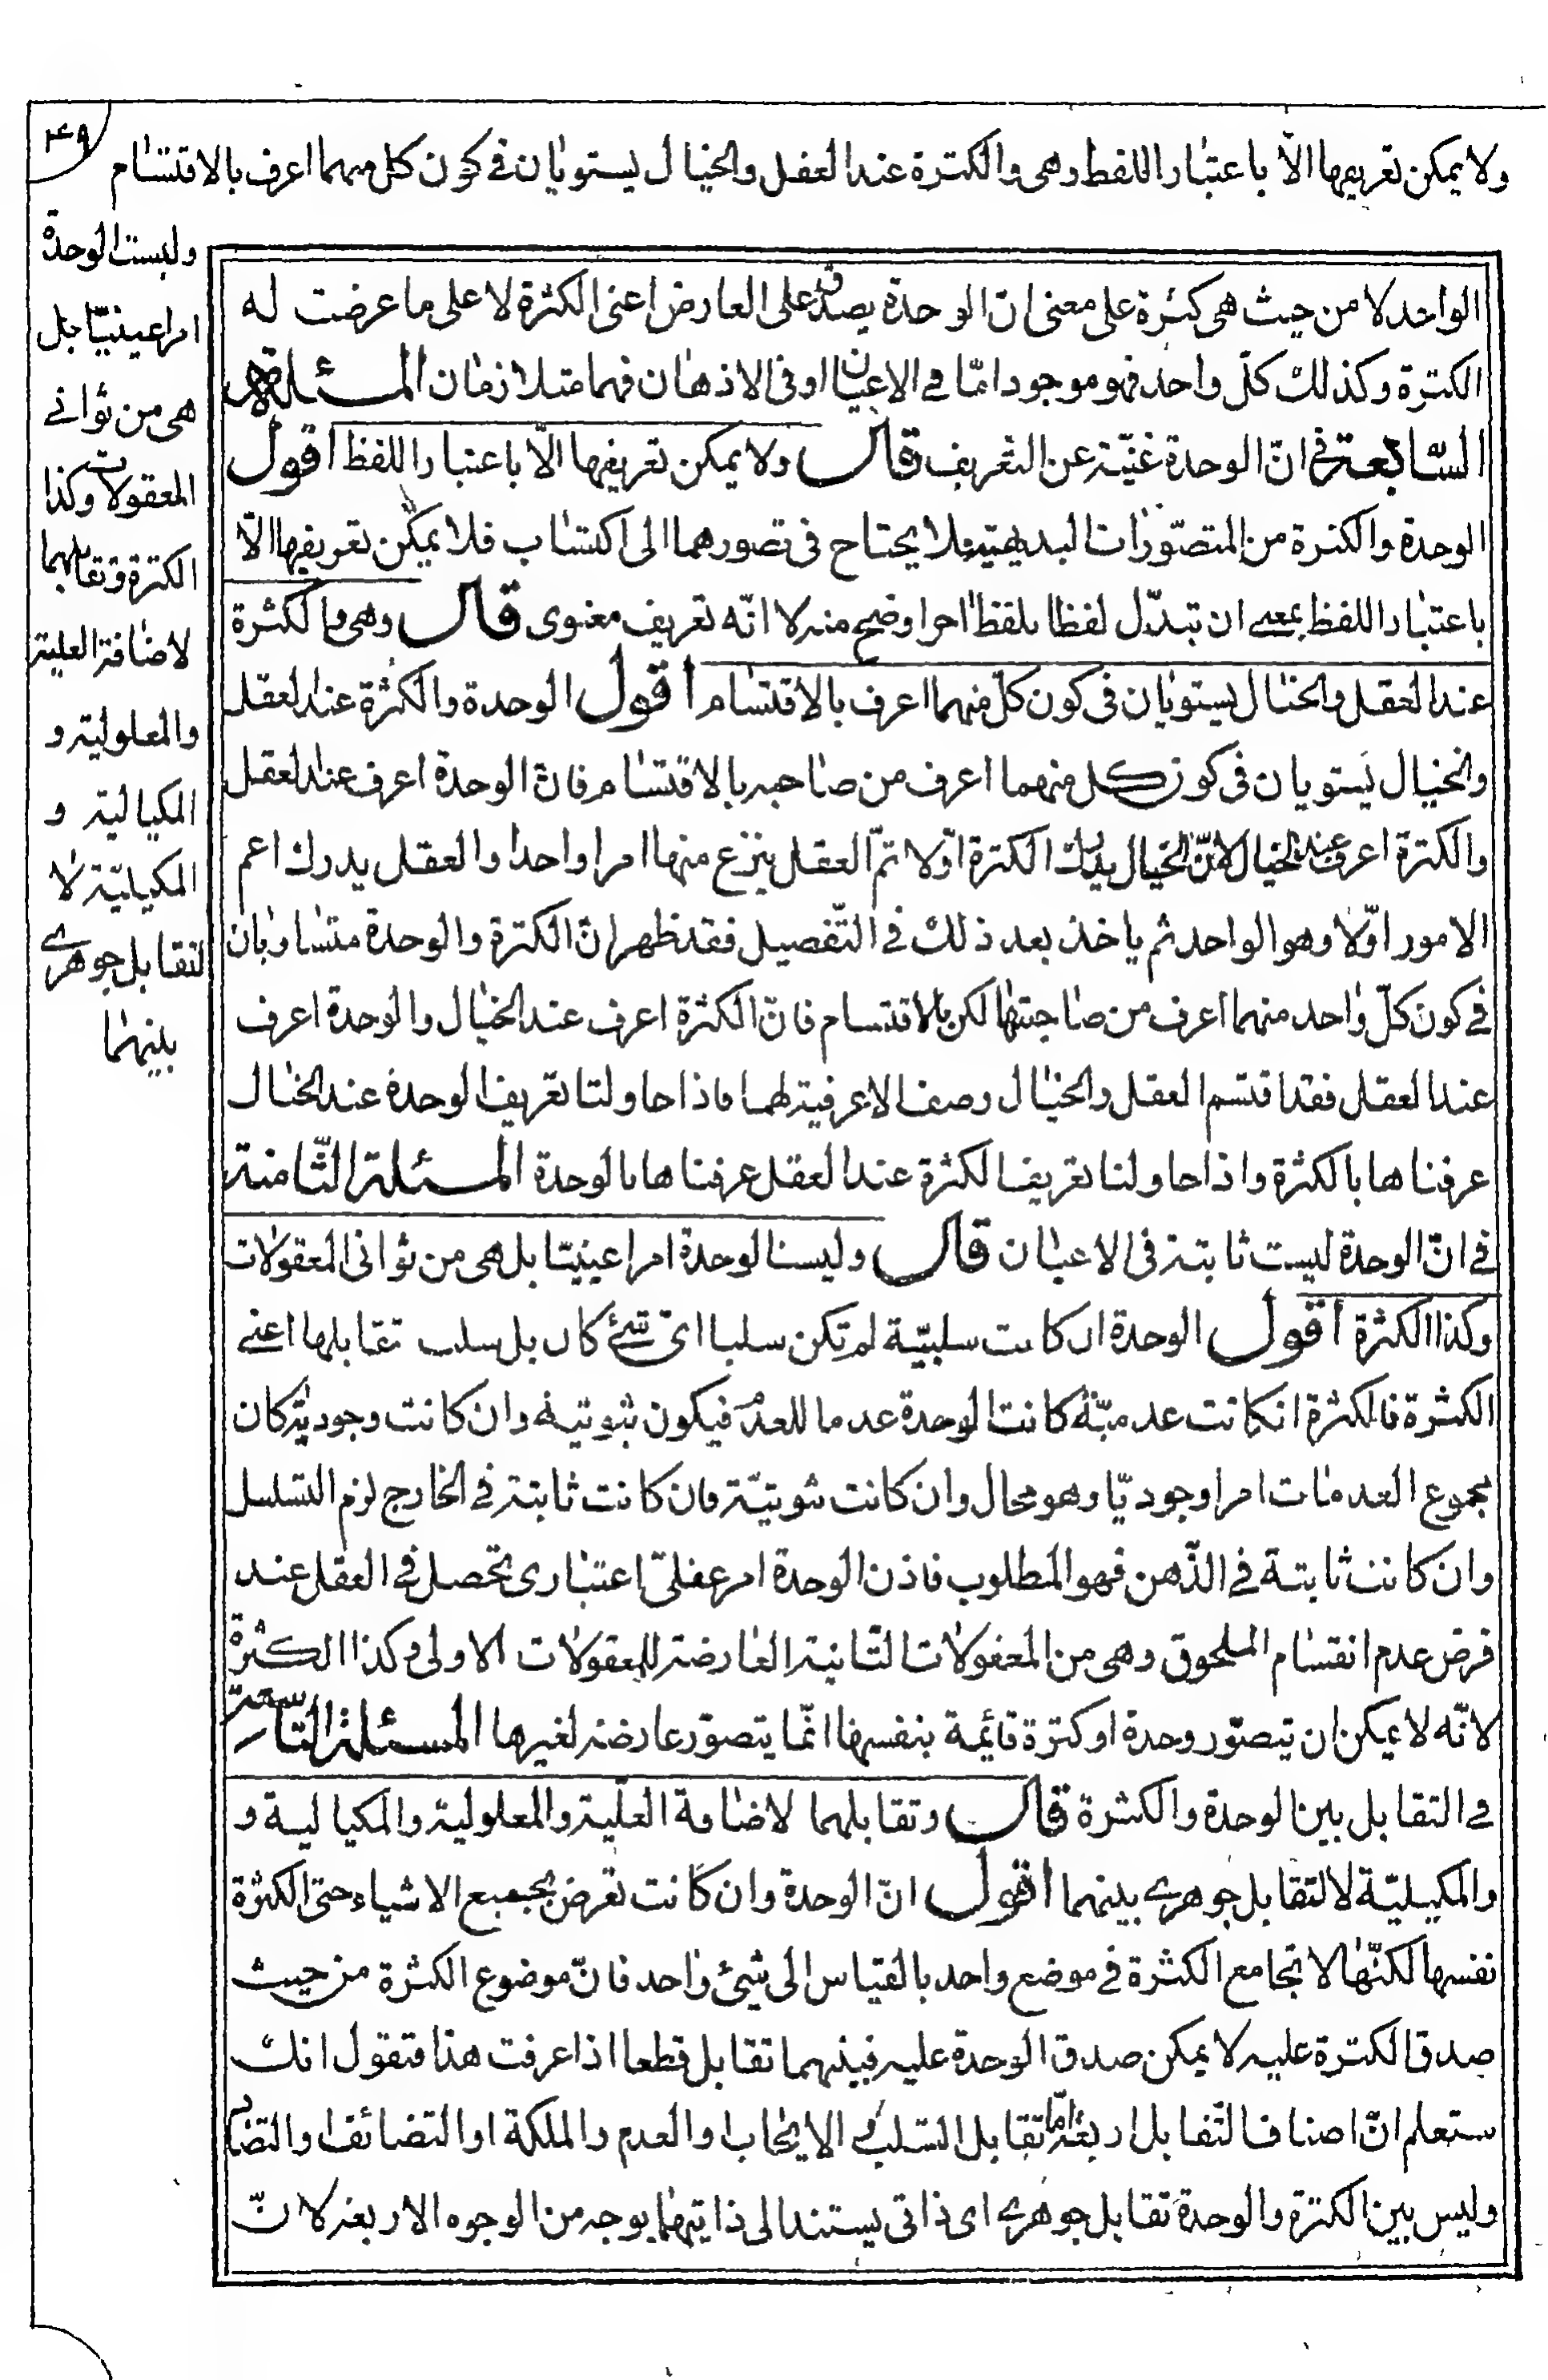 ۴۹
ولا يمكن تعريفها الّا باعتبار اللفظ وهى والكثرة عند العقل والخيال يستويان فى كون كل منهما اعرف بالاقتسام
وليست الوحدة
امرا عينيّا بل
هى من ثوانى
المعقولات وكذا
الكثرة وتقابلهما
لاضافة العلية
والمعلولية و
المكيالية و
المكيليّة لا
لتقابل جوهرى
بينهما
الواحد لا من حيث هى كثرة على معنى انّ الوحدة يصدق على العارض اعنى الكثرة لا على ما عرضت له
الكثرة وكذلك كلّ واحد فهو موجود امّا فى الاعيان او فى الاذهان فهما متلازمان المسئلة
السّابعة فى انّ الوحدة غنيّة عن التعريف قال ولا يمكن تعريفها الّا باعتبار اللفظ اقول
الوحدة والكثرة من المتصوّرات البديهيّة فلا يحتاج فى تصورهما الى اكتساب فلا يمكن تعريفها الّا
باعتبار اللفظ بمعنى ان تبدّل لفظا بلفظ اخر اوضح منه لا انّه تعريف معنوى قال وهى والكثرة
عند العقل والخيال يستويان فى كون كلّ منهما اعرف بالاقتسام اقول الوحدة والكثرة عند العقل
والخيال يستويان فى كون كل منهما اعرف من صاحبه بالاقتسام فانّ الوحدة اعرف عند العقل
والكثرة اعرف عند الخيال لانّ الخيال يدرك الكثرة اوّلا ثمّ العقل ينزع منها امرا واحدا والعقل يدرك اعم
الامور اوّلا وهو الواحد ثم ياخذ بعد ذلك فى التّفصيل فقد ظهر انّ الكثرة والوحدة متساويان
فى كون كلّ واحد منهما اعرف من صاحبتها لكن بالاقتسام فانّ الكثرة اعرف عند الخيال والوحدة اعرف
عند العقل فقد اقتسم العقل والخيال وصف الاعرفية لهما فاذا حاولنا تعريف الوحدة عند الخيال
عرفناها بالكثرة واذا حاولنا تعريف الكثرة عند العقل عرفناها بالوحدة المسئلة الثّامنة
فى انّ الوحدة ليست ثابتة فى الاعيان قال وليست الوحدة امرا عينيّا بل هى من ثوانى المعقولات
وكذا الكثرة اقول الوحدة ان كانت سلبيّة لم تكن سلبا اىّ شىء كان بل سلب تقابلها اعنى
الكثرة فالكثرة انكانت عدميّة كانت الوحدة عدما للعدم فيكون ثبوتية وان كانت وجودية كان
مجموع العدمات امرا وجوديّا وهو محال وان كانت ثبوتيّة فان كانت ثابتة فى الخارج لزم التسلسل
وان كانت ثابتة فى الذّهن فهو المطلوب فاذن الوحدة امر عقلىّ اعتبارى تحصل فى العقل عند
فرض عدم انقسام الملحوق وهى من المعقولات الثّانية العارضة للمعقولات الاولى وكذا الكثرة
لانّه لا يمكن ان يتصوّر وحدة او كثرة قائمة بنفسها انّما يتصوّر عارضة لغيرها المسئلة التّاسعة
فى التقابل بين الوحدة والكثرة قال وتقابلهما لاضافة العلّية والمعلولية والمكيالية و
والمكيليّة لا لتقابل جوهرى بينهما اقول انّ الوحدة وان كانت تعرض لجميع الاشياء حتى الكثرة
نفسها لكنّها لا تجامع الكثرة فى موضع واحد بالقياس الى شىء واحد فانّ موضوع الكثرة من حيث
صدق الكثرة عليه لا يمكن صدق الوحدة عليه فبينهما تقابل قطعا اذا عرفت هذا فنقول انك
ستعلم انّ اصناف التّقابل اربعة امّا تقابل السّلب و الايجاب او العدم والملكة او التضائف او التضاد
وليس بين الكثرة والوحدة تقابل جوهرى اى ذاتى يستند الى ذاتيهما بوجه من الوجوه الاربعة لانّ